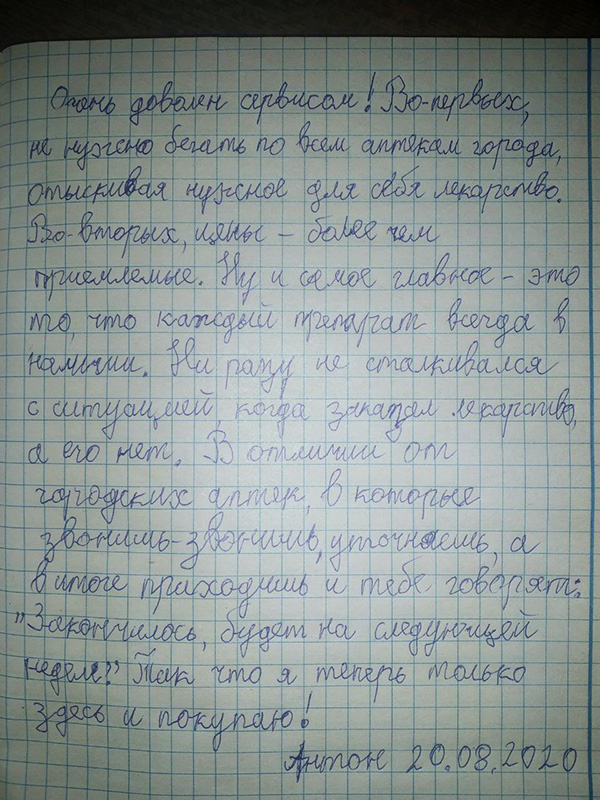 Очень доволен сервисом! Во-первых,
не нужно бегать по всем аптекам города,
отыскивая нужное для себя лекарство.
Во-вторых, цены – более чем
приемлемые. Ну и самое главное – это
то, что каждый препарат всегда в
наличии. Ни разу не сталкивался
с ситуацией, когда заказал лекарство,
а его нет. В отличии от
городских аптек, в которые
звонишь-звонишь, уточняешь, а
в итоге приходишь и тебе говорят:
"Закончилось, будет на следующей
неделе!" Так что я теперь только
здесь и покупаю!
Антон 20.08.2020